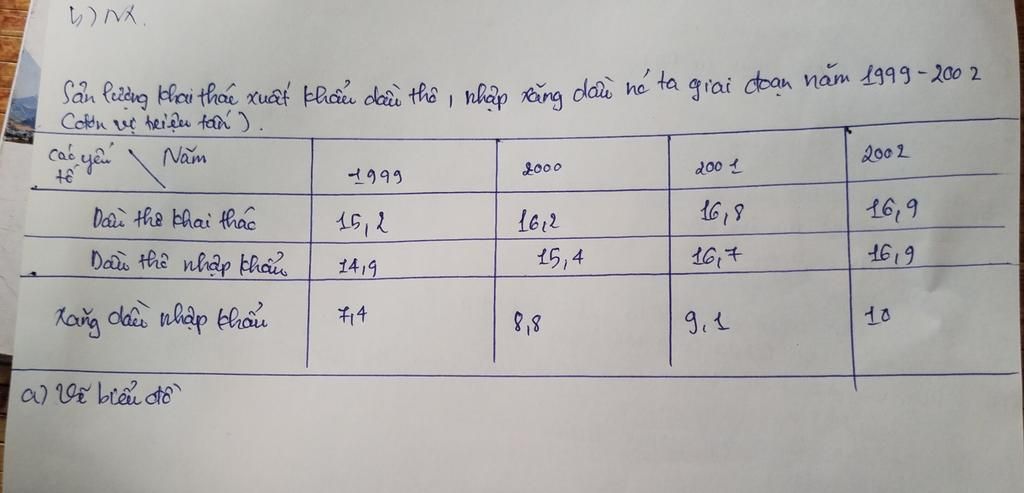 b) NX.
Sản lượng khai thác xuất khẩu dầu thô, nhập xăng dầu nớ ta giai đoạn năm 1999-2002
(đơn vị triệu tấn).
Các yếu tố Năm 1999 2000 2001 2002
Dầu thô khai thác 15,2 16,2 16,8 16,9
Dầu thô nhập khẩu 14,9 15,4 16,7 16,9
Xăng dầu nhập khẩu 7,4 8,8 9,1 10
a) Vẽ biểu đồ